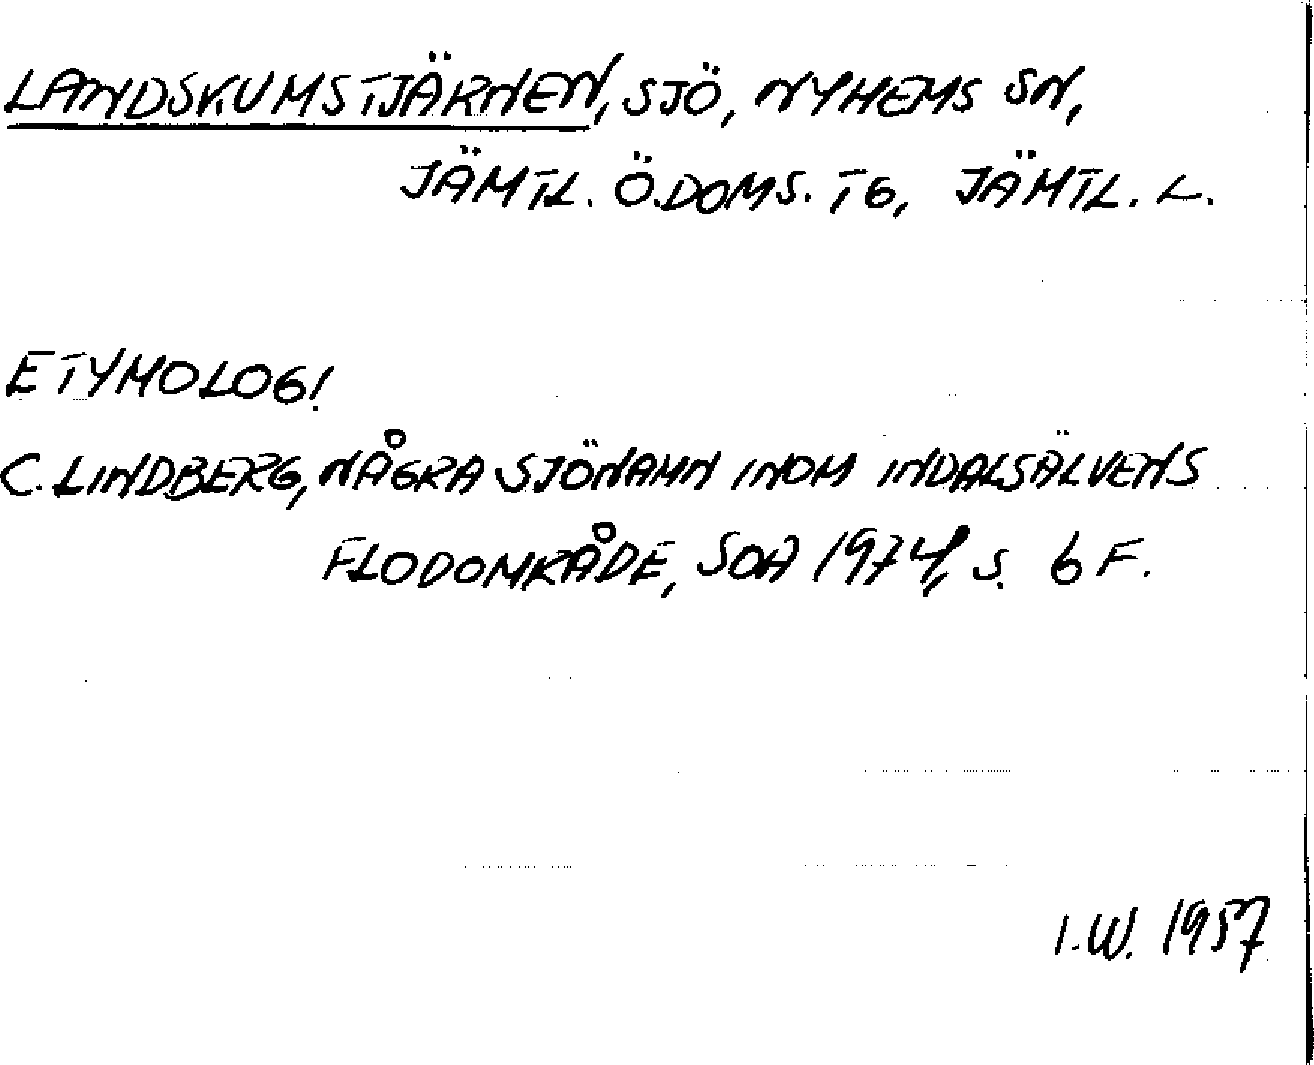 LANDSKUMSTJÄRNEN, SJÖ, NYHEMS SN,
JÄMTL. Ö.DOMS. TG, JÄMTL. L.
ETYMOLOG!
C. LINDBERG, NÅGRA SJÖNAMN INOM INDALSÄLVENS
FLODOMRÅDE, SOÅ 1974, S. 6 F.
I.W. 1957